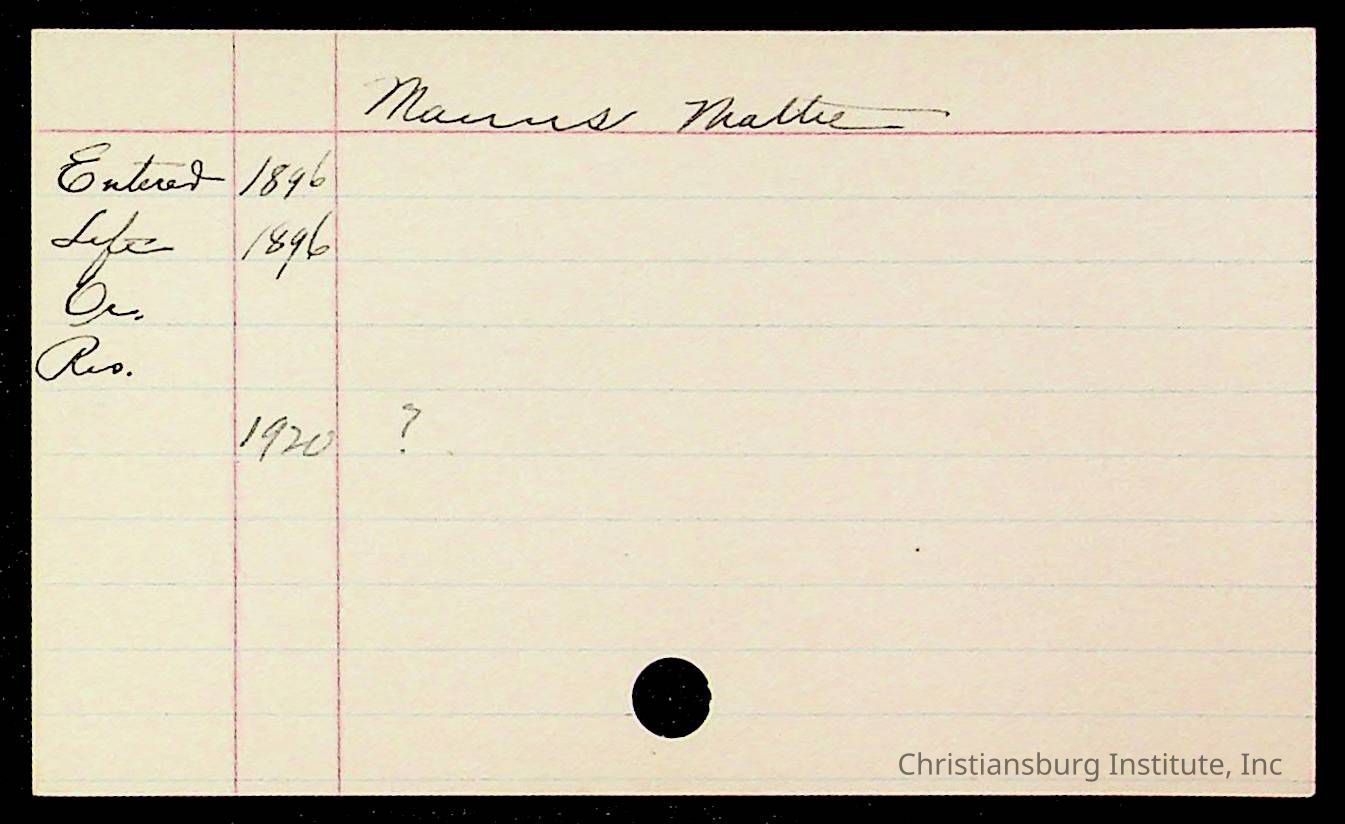 Mattie
Entered 1896
Left 1896
Or.
Res.
1920 ?
Christiansburg Institute, Inc